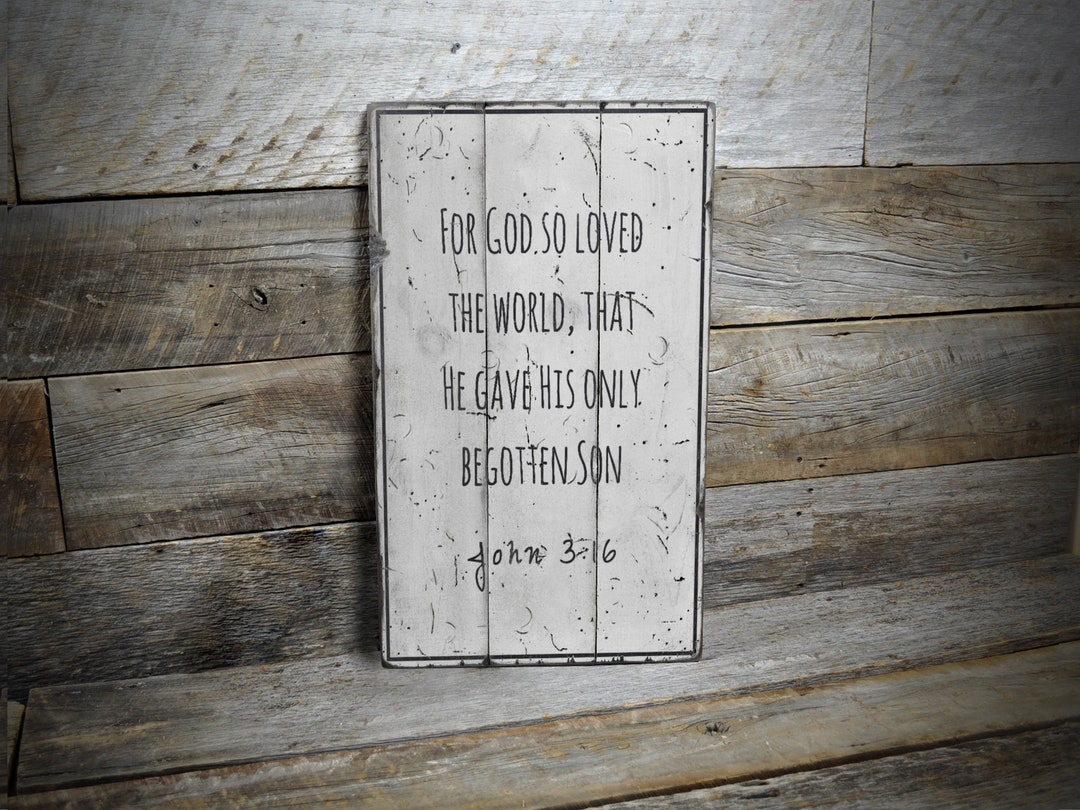 For God so loved
the world, that
He gave His only
begotten Son
John 3:16